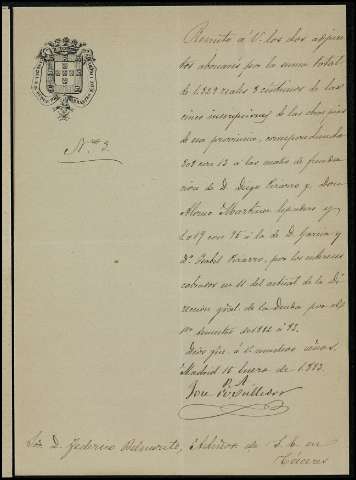 Nº 3.
Remito á V. los dos adjun
tos abonarés por la suma total
de 1.829 reales 8 céntimos de las
cinco inscripciones de las obras pias
de esa provincia, correspondiendo
13 á las de funda
ción de D. Diego Pizarro y Don
Alonso Martinez y
con 75 á la de D. Garcia y
Dª Isabel Pizarro, por los intereses
cobrados en 11 del actual de la Di
reccion gral. de la Deuda por el
1er semestre de 1882 á 83.
Dios gue. á V. muchos años.
Madrid 15 Enero de 1883.
P. A.
José
Sr. D. Federico Belmonte, Admor. de S. E. en
Cáceres